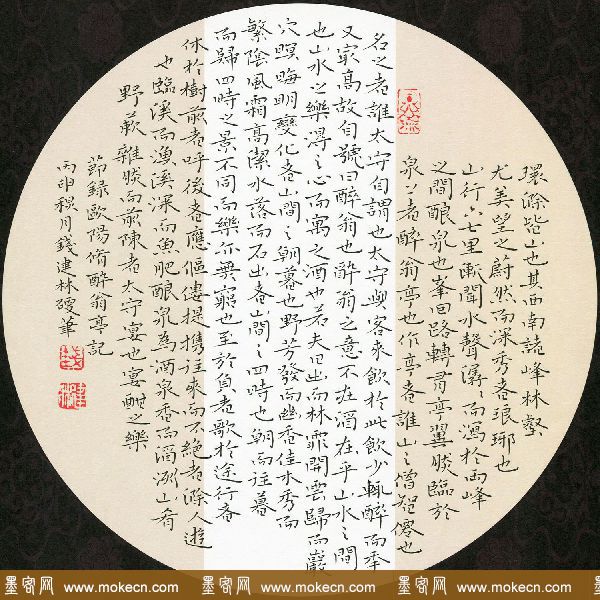 環滁皆山也其西南諸峰林壑
尤美望之蔚然而深秀者琅琊也
山行六七里漸聞水聲潺々而瀉於兩峰
之間釀泉也峯回路轉有亭翼然臨於
泉上者醉翁亭也作亭者誰山之僧智僊也
名之者誰太守自謂也太守與客來飲於此飲少輒醉而年
又最高故自號曰醉翁也醉翁之意不在酒在乎山水之間
也山水之樂得之心而寓之酒也若夫日出而林霏開雲歸而巖
穴暝晦明變化者山間之朝暮也野芳發而幽香佳木秀而
繁陰風霜高潔水落而石出者山間之四時也朝而往暮
而歸四時之景不同而樂亦無窮也至於負者歌於途行者
休於樹前者呼後者應傴僂提攜往來而不絕者滁人遊
也臨溪而漁溪深而魚肥釀泉為酒泉香而酒洌山肴
野蔌雜然而前陳者太守宴也宴酣之樂
節錄歐陽脩醉翁亭記
丙申穐月錢建林謾筆
墨客网 www.mokecn.com 墨客网 www.mokecn.com 墨客网 www.mokecn.com